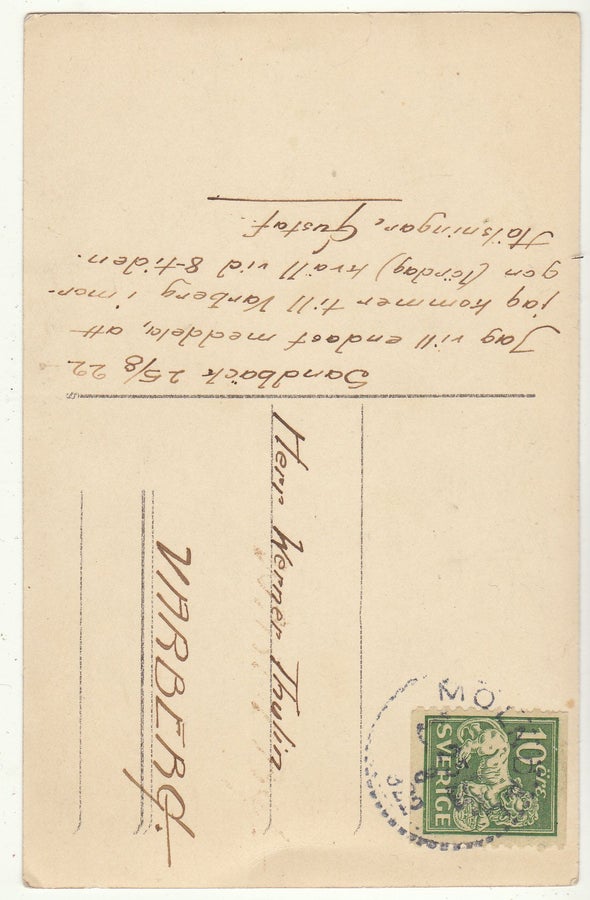 Sandbäck 25/8 22
Jag vill endast meddela, att
jag kommer till Varberg i mor-
gon (lördag) kväll vid 8-tiden.
Hälsningar, Gustaf.
Herr Werner Thylin
VARBERG.
10 ÖRE
SVERIGE